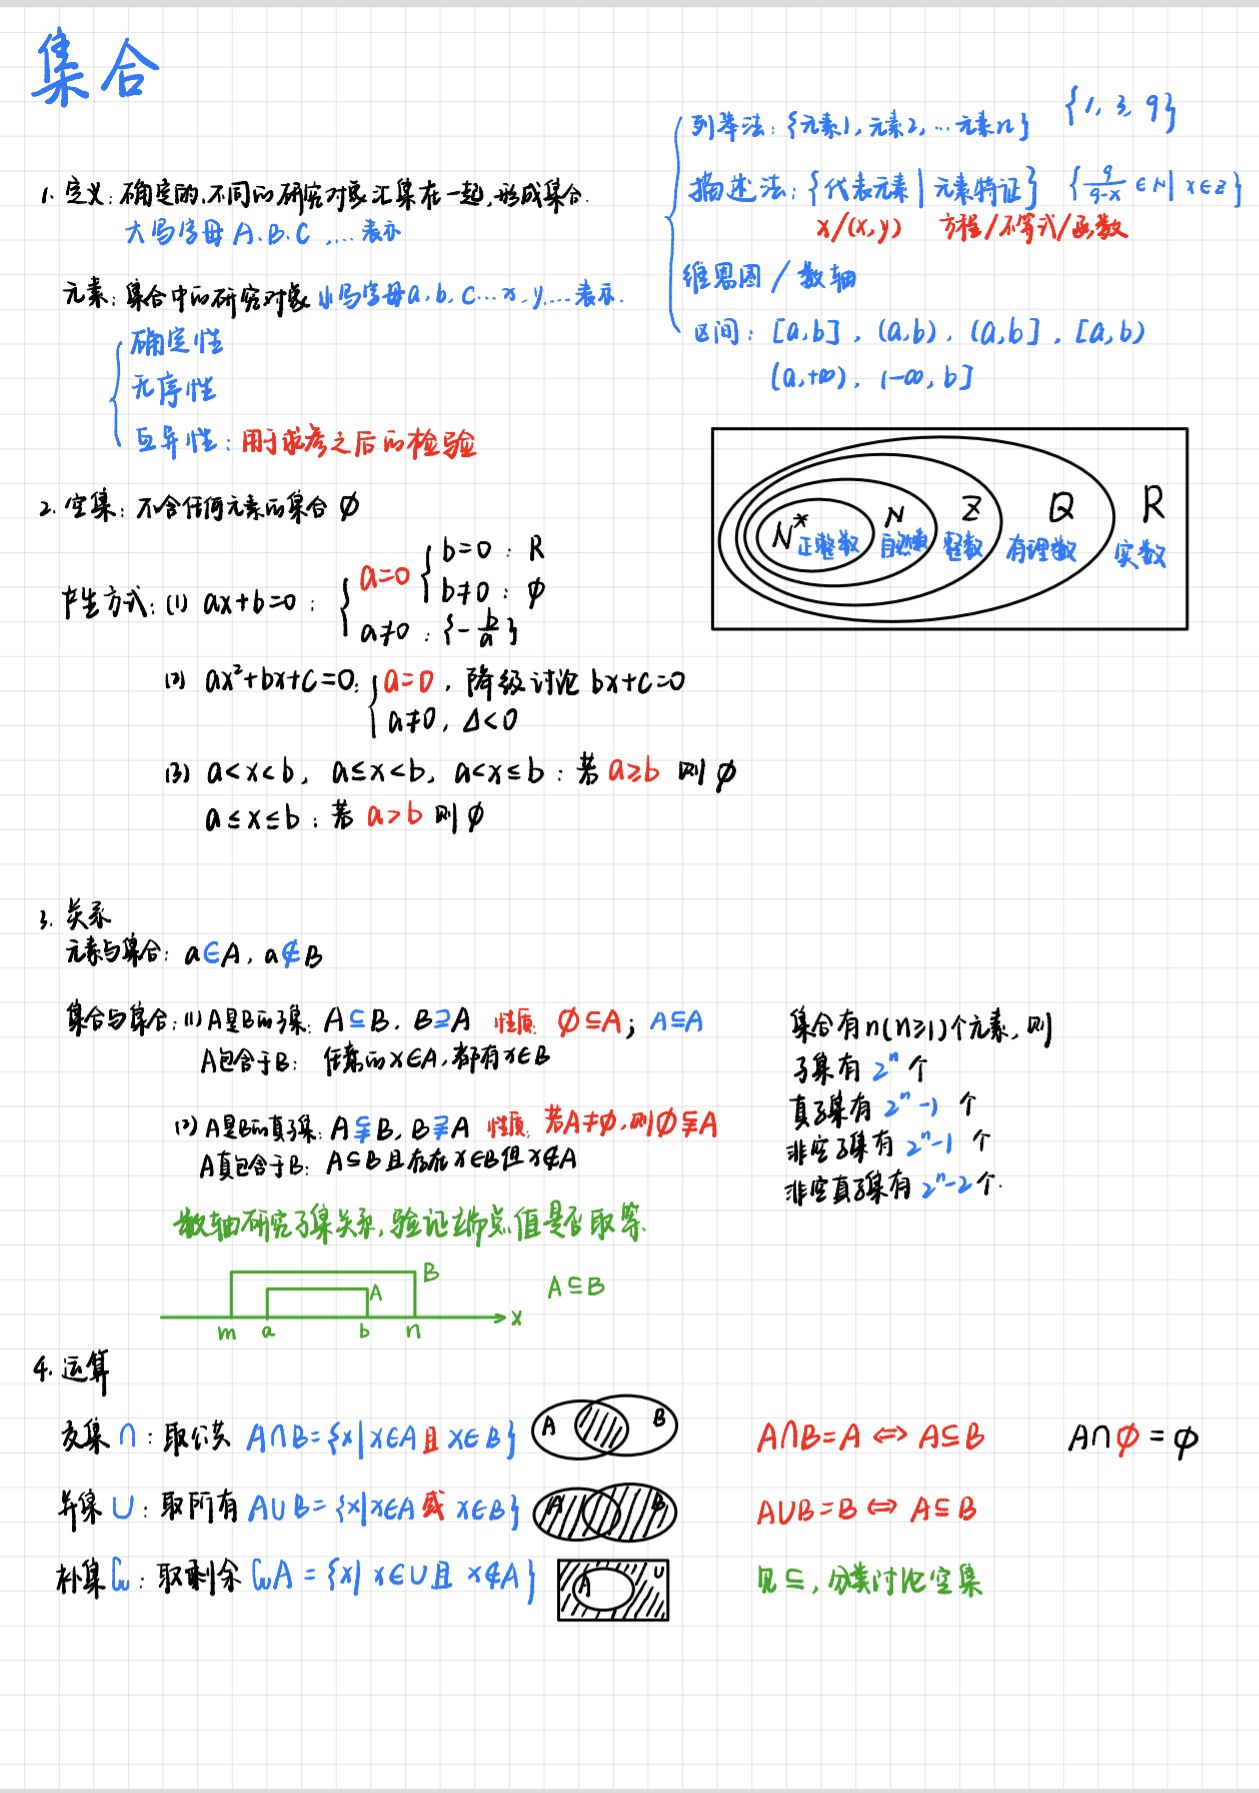 集合
1. 定义: 确定的、不同的研究对象汇集在一起,形成集合.
大写字母 A. B. C ,… 表示
元素: 集合中的研究对象 小写字母 a, b, c … x, y, … 表示.
确定性
无序性
互异性: 用于求参之后的检验
列举法: {元素1, 元素2, … 元素n} {1, 3, 9}
描述法: {代表元素 | 元素特证} {9/(9-x) ∈ N | x∈Z}
x/(x,y) 方程/不等式/函数
维恩图 / 数轴
区间: [a,b] , (a,b) , (a,b] , [a,b)
(a,+∞) , (-∞, b]
N* 正整数 N 自然数 Z 整数 Q 有理数 R 实数
2. 空集: 不含任何元素的集合 ∅
产生方式: (1) ax+b=0 : { a=0 { b=0 : R
b≠0 : ∅
a≠0 : {-b/a}
(2) ax²+bx+c=0: { a=0 , 降级讨论 bx+c=0
a≠0, Δ<0
(3) a<x<b, a≤x<b, a<x≤b : 若 a≥b 则 ∅
a≤x≤b : 若 a>b 则 ∅
3. 关系
元素与集合: a∈A, a∉B
集合与集合: (1) A是B的子集: A⊆B. B⊇A 性质: ∅⊆A; A⊆A
A包含于B: 任意的x∈A, 都有x∈B
(2) A是B的真子集: A⫋B, B⫌A 性质: 若A≠∅, 则∅⫋A
A真包含于B: A⊆B 且存在 x∈B 但 x∉A
集合有n(n≥1)个元素, 则
子集有 2ⁿ 个
真子集有 2ⁿ-1 个
非空子集有 2ⁿ-1 个
非空真子集有 2ⁿ-2 个.
数轴研究子集关系, 验证端点值是否取等.
B
A A⊆B
m a b n x
4. 运算
交集 ∩ : 取公共 A∩B={x|x∈A 且 x∈B} A B A∩B=A ⇔ A⊆B A∩∅=∅
并集 ∪ : 取所有 A∪B={x|x∈A 或 x∈B} A B A∪B=B ⇔ A⊆B
补集 ∁u : 取剩余 ∁uA={x| x∈U 且 x∉A} A U 见⊆, 分类讨论空集